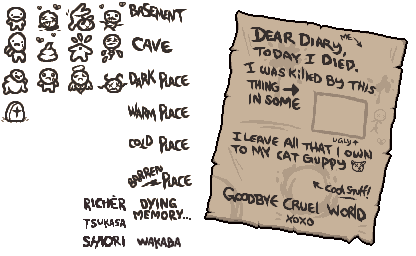 BASEMENT
CAVE
DARK PLACE
WARM PLACE
COLD PLACE
BARREN PLACE
RICHER DYING
MEMORY...
TSUKASA
SHIORI WAKABA
DEAR DIARY,
ME
TODAY I DIED.
I WAS KILLED BY THIS
THING
IN SOME
UGLY
I LEAVE ALL THAT I OWN
TO MY CAT GUPPY
COOL STUFF!
GOODBYE CRUEL WORLD
XOXO